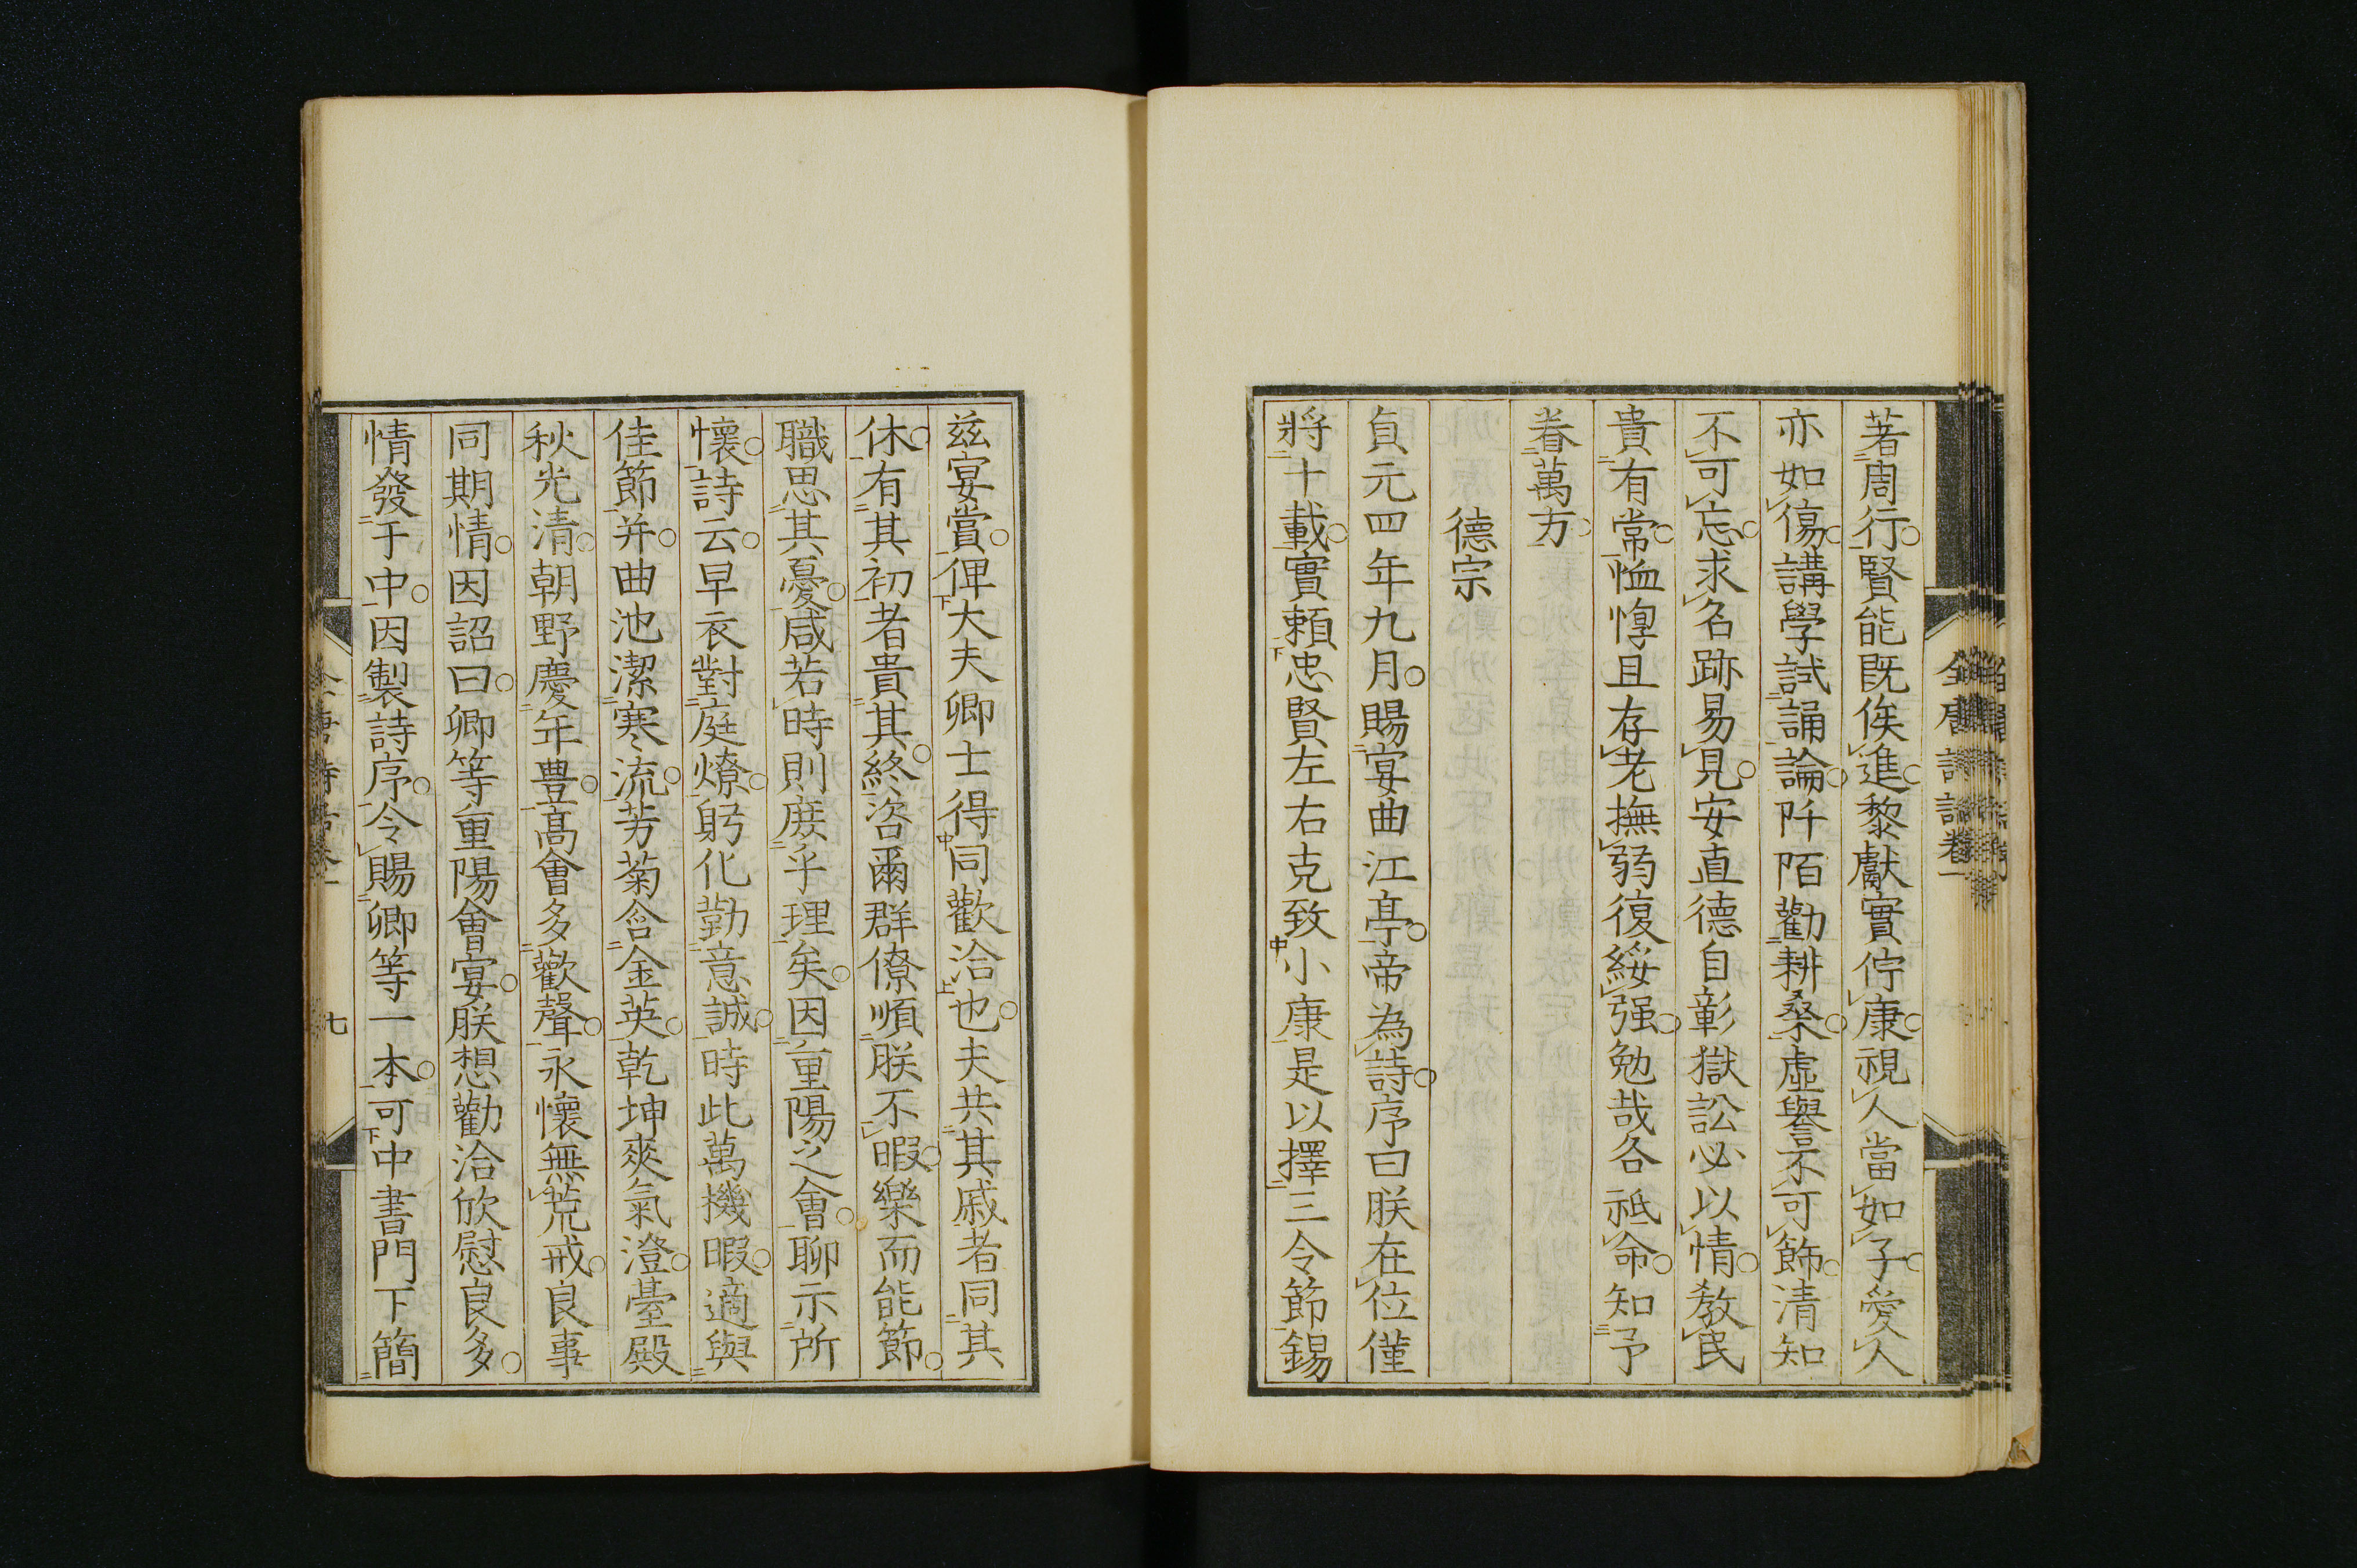 著周行賢能既俟進黎獻實佇康視人當如子愛人
亦如傷講學試誦論阡陌勸耕桑虛譽不可飾清知
不可忘求名跡易見安直德自彰獄訟必以情教民
貴有常恤惸且存老撫弱復綏强勉哉各祗命知予
眷萬方
德宗
貞元四年九月賜宴曲江亭帝為詩序曰朕在位僅
將十載實賴忠賢左右克致小康是以擇三令節錫
茲宴賞俾大夫卿士得同歡洽也夫共其戚者同其
休有其初者貴其終咨爾群僚順朕不暇樂而能節
職思其憂咸若時則庶乎理矣因重陽之會聊示所
懷詩云早衣對庭燎躬化勤意誠時此萬機暇適與
佳節并曲池潔寒流芳菊含金英乾坤爽氣澄臺殿
秋光清朝野慶年豊高會多歡聲永懷無荒戒良事
同期情因詔曰卿等重陽會宴朕想勸洽欣慰良多
情發于中因製詩序令賜卿等一本可中書門下簡
七